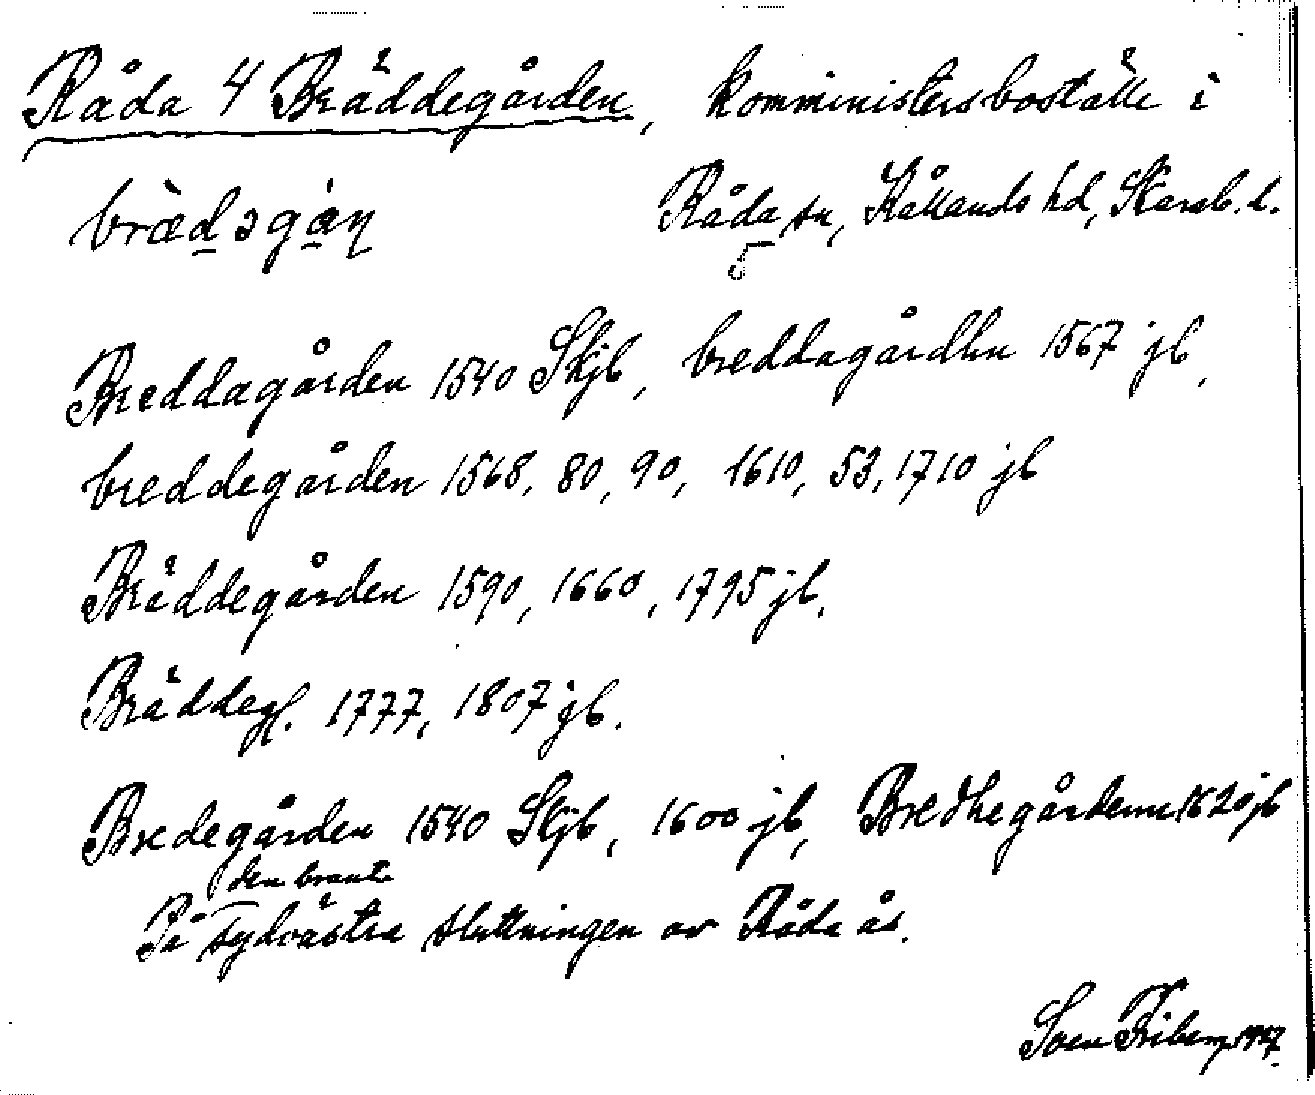 Råda 4 Bräddegården, komministersboställe i
Råda sn, Kållands hd, Skarab. l.
bràdəgán
5
Breddagården 1540 Skjb, breddagårdhn 1567 jb,
breddegården 1568, 80, 90, 1610, 53, 1710 jb
Bräddegården 1590, 1660, 1795 jb,
Bräddeg. 1777, 1807 jb.
Bredegården 1540 Skjb, 1600 jb, Bredhegårdenn 1620 jb
På den brant sydvästra sluttningen av Råda ås.
Sven Friberg